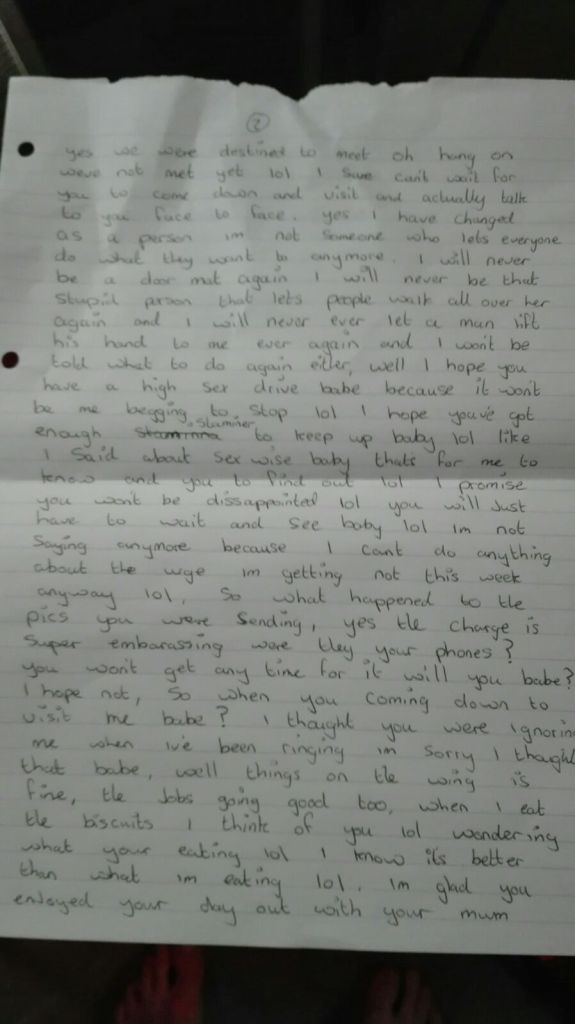 2
yes we were destined to meet oh hang on
weve not met yet lol I sure can't wait for
you to come down and visit and actually talk
to you face to face. yes I have changed
as a person im not someone who lets everyone
do what they want to anymore. I will never
be a door mat again I will never be that
stupid person that lets people walk all over her
again and I will never ever let a man lift
his hand to me ever again and I won't be
told what to do again either, well I hope you
have a high sex drive babe because it won't
be me begging to stop lol I hope you've got
enough staminer to keep up baby lol like
I said about sex wise baby thats for me to
know and you to find out lol I promise
you won't be dissappointed lol you will just
have to wait and see baby lol im not
saying anymore because I cant do anything
about the urge im getting not this week
anyway lol. So what happened to the
pics you were sending, yes the charge is
super embarassing were they your phones?
you won't get any time for it will you babe?
I hope not, So when you coming down to
visit me babe? I thought you were ignorin
me when ive been ringing im sorry I though
that babe, well things on the wing is
fine, the Jobs going good too, when I eat
the biscuits I think of you lol wondering
what your eating lol I know it's better
than what im eating lol. Im glad you
enjoyed your day out with your mum